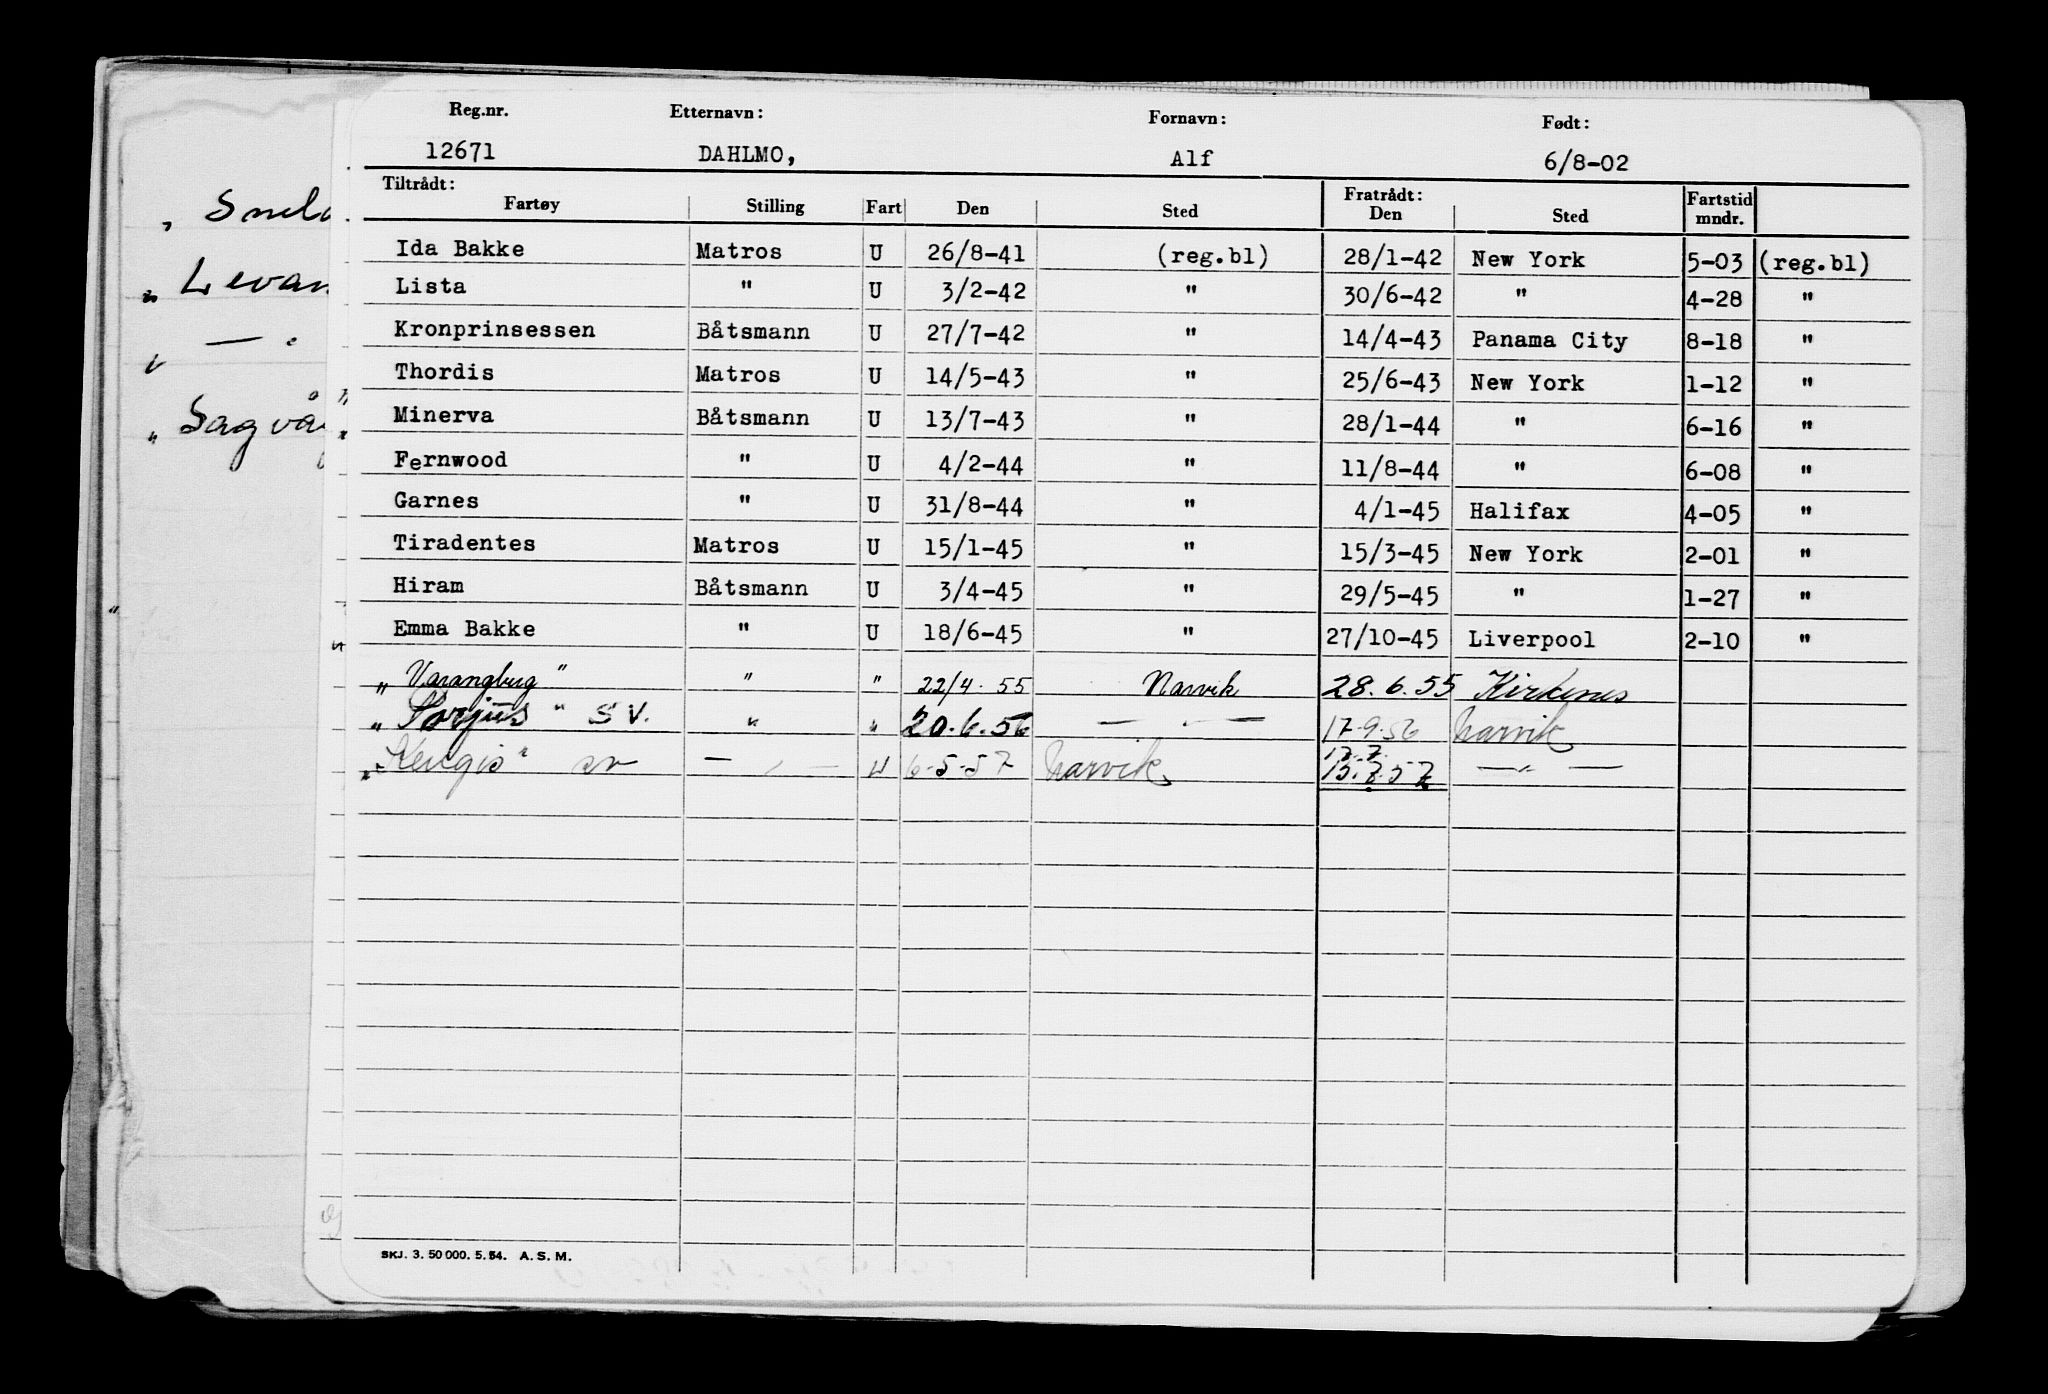 Reg.nr. Etternavn: Fornavn: Født:
12671 DAHLMO, Alf 6/8-02
Tiltrådt: Fratrådt: Fartstid
Fartøy Stilling Fart Den Sted Den Sted mndr.
Ida Bakke Matros U 26/8-41 (reg.bl) 28/1-42 New York 5-03 (reg.bl)
Lista " U 3/2-42 " 30/6-42 " 4-28 "
Kronprinsessen Båtsmann U 27/7-42 " 14/4-43 Panama City 8-18 "
Thordis Matros U 14/5-43 " 25/6-43 New York 1-12 "
Minerva Båtsmann U 13/7-43 " 28/1-44 " 6-16 "
Fernwood " U 4/2-44 " 11/8-44 " 6-08 "
Garnes " U 31/8-44 " 4/1-45 Halifax 4-05 "
Tiradentes Matros U 15/1-45 " 15/3-45 New York 2-01 "
Hiram Båtsmann U 3/4-45 " 29/5-45 " 1-27 "
Emma Bakke " U 18/6-45 " 27/10-45 Liverpool 2-10 "
„Varangbug" " " 22/4-55 Narvik 28.6.55 Kirkenes
" S.V. " " 20.6.56 — " — 17-9-56 Narvik
„Kengis" sv — " — U 6-5-57 Narvik 15.7.57 — " —
SKJ. 3. 50 000. 5. 54. A. S. M.